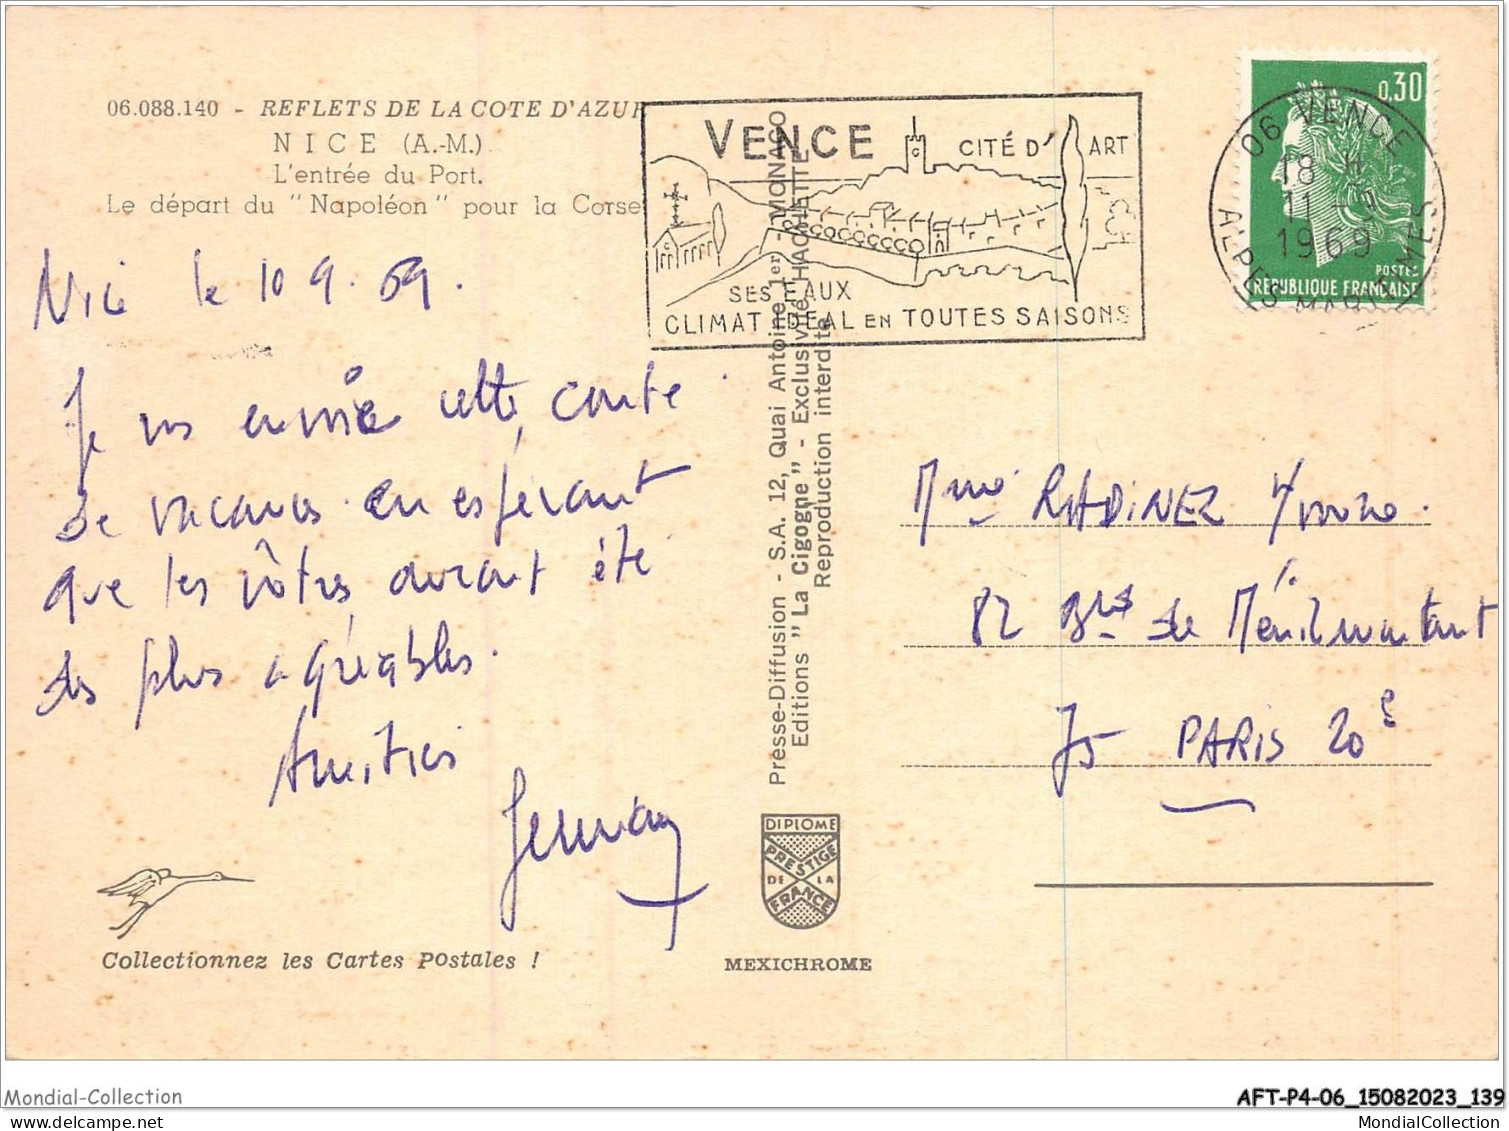 06.088.140 - REFLETS DE LA COTE D'AZUR
NICE (A.-M.)
L'entrée du Port.
Le départ du "Napoléon" pour la Corse
VENCE
CITÉ D'ART
SES EAUX
CLIMAT IDEAL EN TOUTES SAISONS
0,30
POSTES
REPUBLIQUE FRANÇAISE
06 VENCE
18 H
11 - 9
1969
ALPES MARITIMES
Nice le 10 9. 69.
Je vs envoie cette carte
de vacances en espérant
que les vôtres auront été
des plus agréables.
Amitiés
Presse-Diffusion - S.A. 12, Quai Antoine 1er - MONACO
Editions "La Cigogne" - Exclusivité HACHETTE
Reproduction interdite
Mme RADINEZ Yvonne.
82 Bld de Ménilmontant
75 PARIS 20e
DIPLOME
PRESTIGE
DE LA
FRANCE
MEXICHROME
Collectionnez les Cartes Postales !
Mondial-Collection
AFT-P4-06_15082023_139
MondialCollection